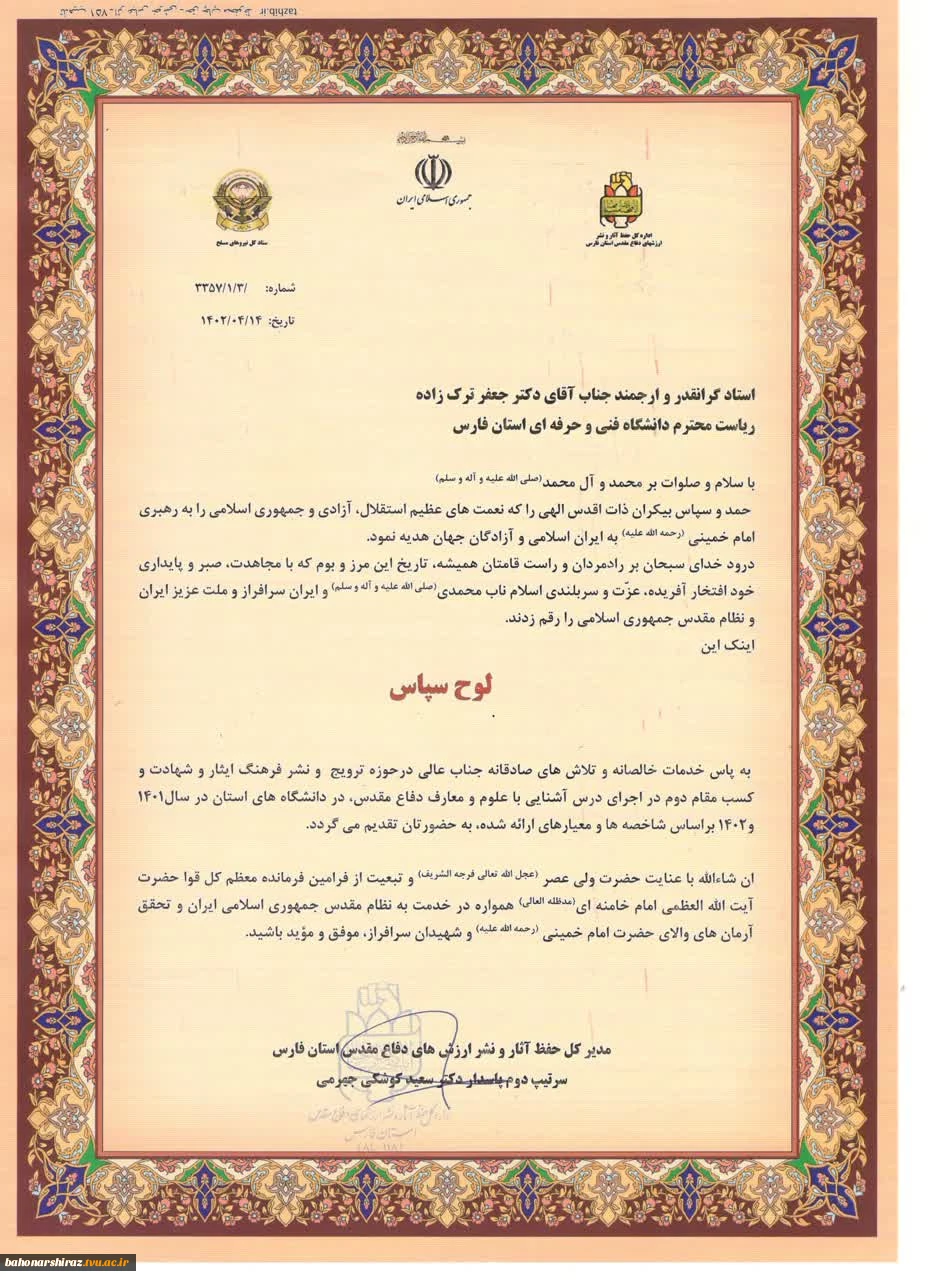 tazhib.ir
بسم الله الرحمن الرحیم
جمهوری اسلامی ایران
اداره کل حفظ آثار و نشر
ارزشهای دفاع مقدس استان فارس
ستاد کل نیروهای مسلح
شماره: /۳۳۵۷/۱/۳
تاریخ: ۱۴۰۲/۰۴/۱۴
استاد گرانقدر و ارجمند جناب آقای دکتر جعفر ترک زاده
ریاست محترم دانشگاه فنی و حرفه ای استان فارس
با سلام و صلوات بر محمد و آل محمد(صلی الله علیه و آله و سلم)
حمد و سپاس بیکران ذات اقدس الهی را که نعمت های عظیم استقلال، آزادی و جمهوری اسلامی را به رهبری
امام خمینی (رحمه الله علیه) به ایران اسلامی و آزادگان جهان هدیه نمود.
درود خدای سبحان بر رادمردان و راست قامتان همیشه، تاریخ این مرز و بوم که با مجاهدت، صبر و پایداری
خود افتخار آفریده، عزّت و سربلندی اسلام ناب محمدی(صلی الله علیه و آله و سلم) و ایران سرافراز و ملت عزیز ایران
و نظام مقدس جمهوری اسلامی را رقم زدند.
اینک این
لوح سپاس
به پاس خدمات خالصانه و تلاش های صادقانه جناب عالی درحوزه ترویج و نشر فرهنگ ایثار و شهادت و
کسب مقام دوم در اجرای درس آشنایی با علوم و معارف دفاع مقدس، در دانشگاه های استان در سال۱۴۰۱
و۱۴۰۲ براساس شاخصه ها و معیارهای ارائه شده، به حضورتان تقدیم می گردد.
ان شاءالله با عنایت حضرت ولی عصر (عجل الله تعالی فرجه الشریف) و تبعیت از فرامین فرمانده معظم کل قوا حضرت
آیت الله العظمی امام خامنه ای(مدظله العالی) همواره در خدمت به نظام مقدس جمهوری اسلامی ایران و تحقق
آرمان های والای حضرت امام خمینی (رحمه الله علیه) و شهیدان سرافراز، موفق و مؤید باشید.
مدیر کل حفظ آثار و نشر ارزش های دفاع مقدس استان فارس
سرتیپ دوم پاسدار دکتر سعید کوشکی جهرمی
اداره کل حفظ آثار و نشر ارزشهای دفاع مقدس
استان فارس
bahonarshiraz.tvu.ac.ir